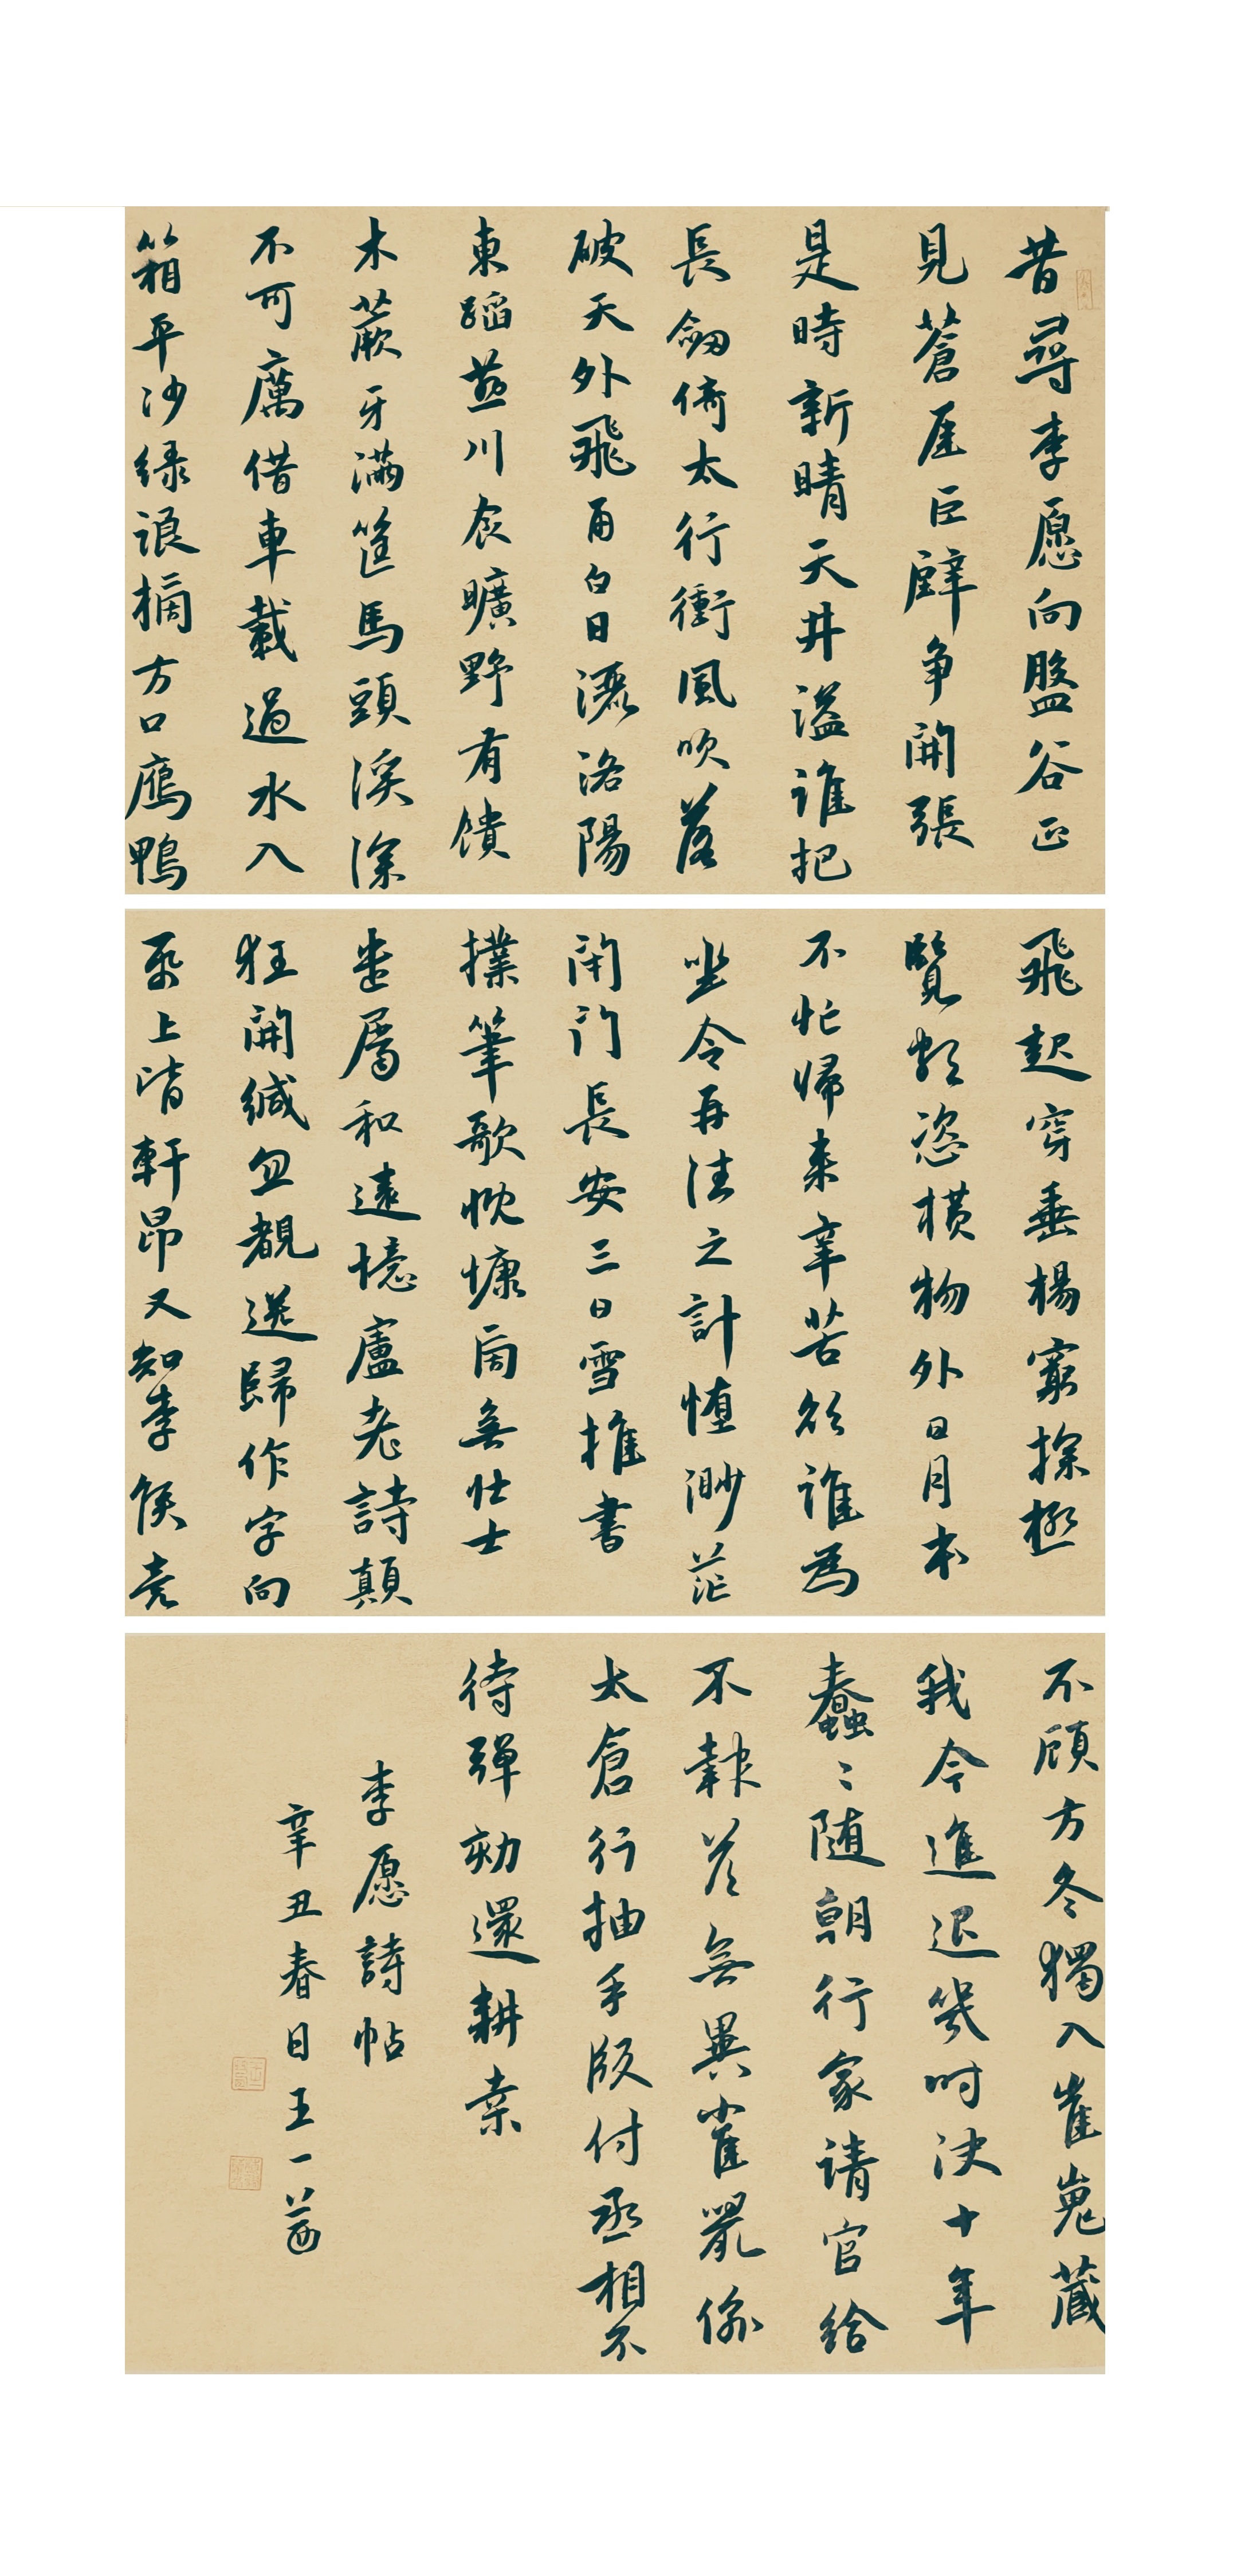 昔尋李愿向盤谷正
見蒼崖巨壁争開張
是時新晴天井溢誰把
長劔倚太行衝風吹落
破天外飛雨白日灑洛陽
東蹈燕川食曠野有饋
木蕨牙滿筐馬頭溪深
不可厲借車載過水入
箱平沙绿浪榜方口鴈鴨
飛起穿垂楊窮探極
覽頗恣横物外日月本
不忙歸来辛苦欲誰為
坐令再往之計墮渺茫
閉門長安三日雪推書
撲筆歌慨慷旁無壮士
遣屬和遠憶盧老詩顛
狂開緘忽覩送歸作字向
紙上皆軒昂又知李侯竟
不顧方冬獨入崔嵬藏
我今進退幾时決十年
蠢〻随朝行家請官給
不報荅無異雀鼠偷
太倉行抽手版付丞相不
待彈劾還耕桑
李愿詩帖
辛丑春日王一